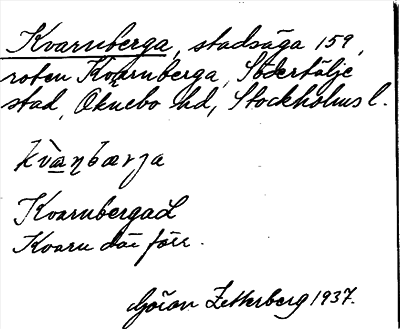 Kvarnberga, stadsäga 159,
roten Kvarnberga, Södertälje
stad, Öknebo hd, Stockholms l.
kvànbærja
KvarnbergaL
Kvarn där förr.
Göran Zetterberg 1937.